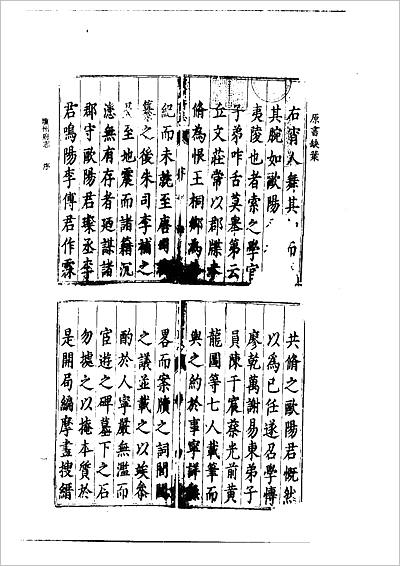 原書缺葉
右宵人舞其
其腕如歐陽
夷陵也者索之學官
子弟咋舌莫舉第云
丘文莊常以郡牒
脩為恨王桐鄉為
紀而未就至唐
纂之後朱司李補之
又至地震而諸籍沉
遞無有存者廼謀諸
郡守歐陽君璨丞李
君鳴陽李傅君作霖
瓊州府志 序
共脩之歐陽君慨然
以為已任遂召學博
廖乾萬謝易東弟子
員陳于宸蔡光前黃
龍圖等七人載筆而
與之約於事寧詳無
畧而案牘之詞閭閻
之議並載之以埃參
酌於人寧嚴無濫而
宦遊之碑墓下之石
勿據之以掩本質於
是開局編摩蓋搜繙